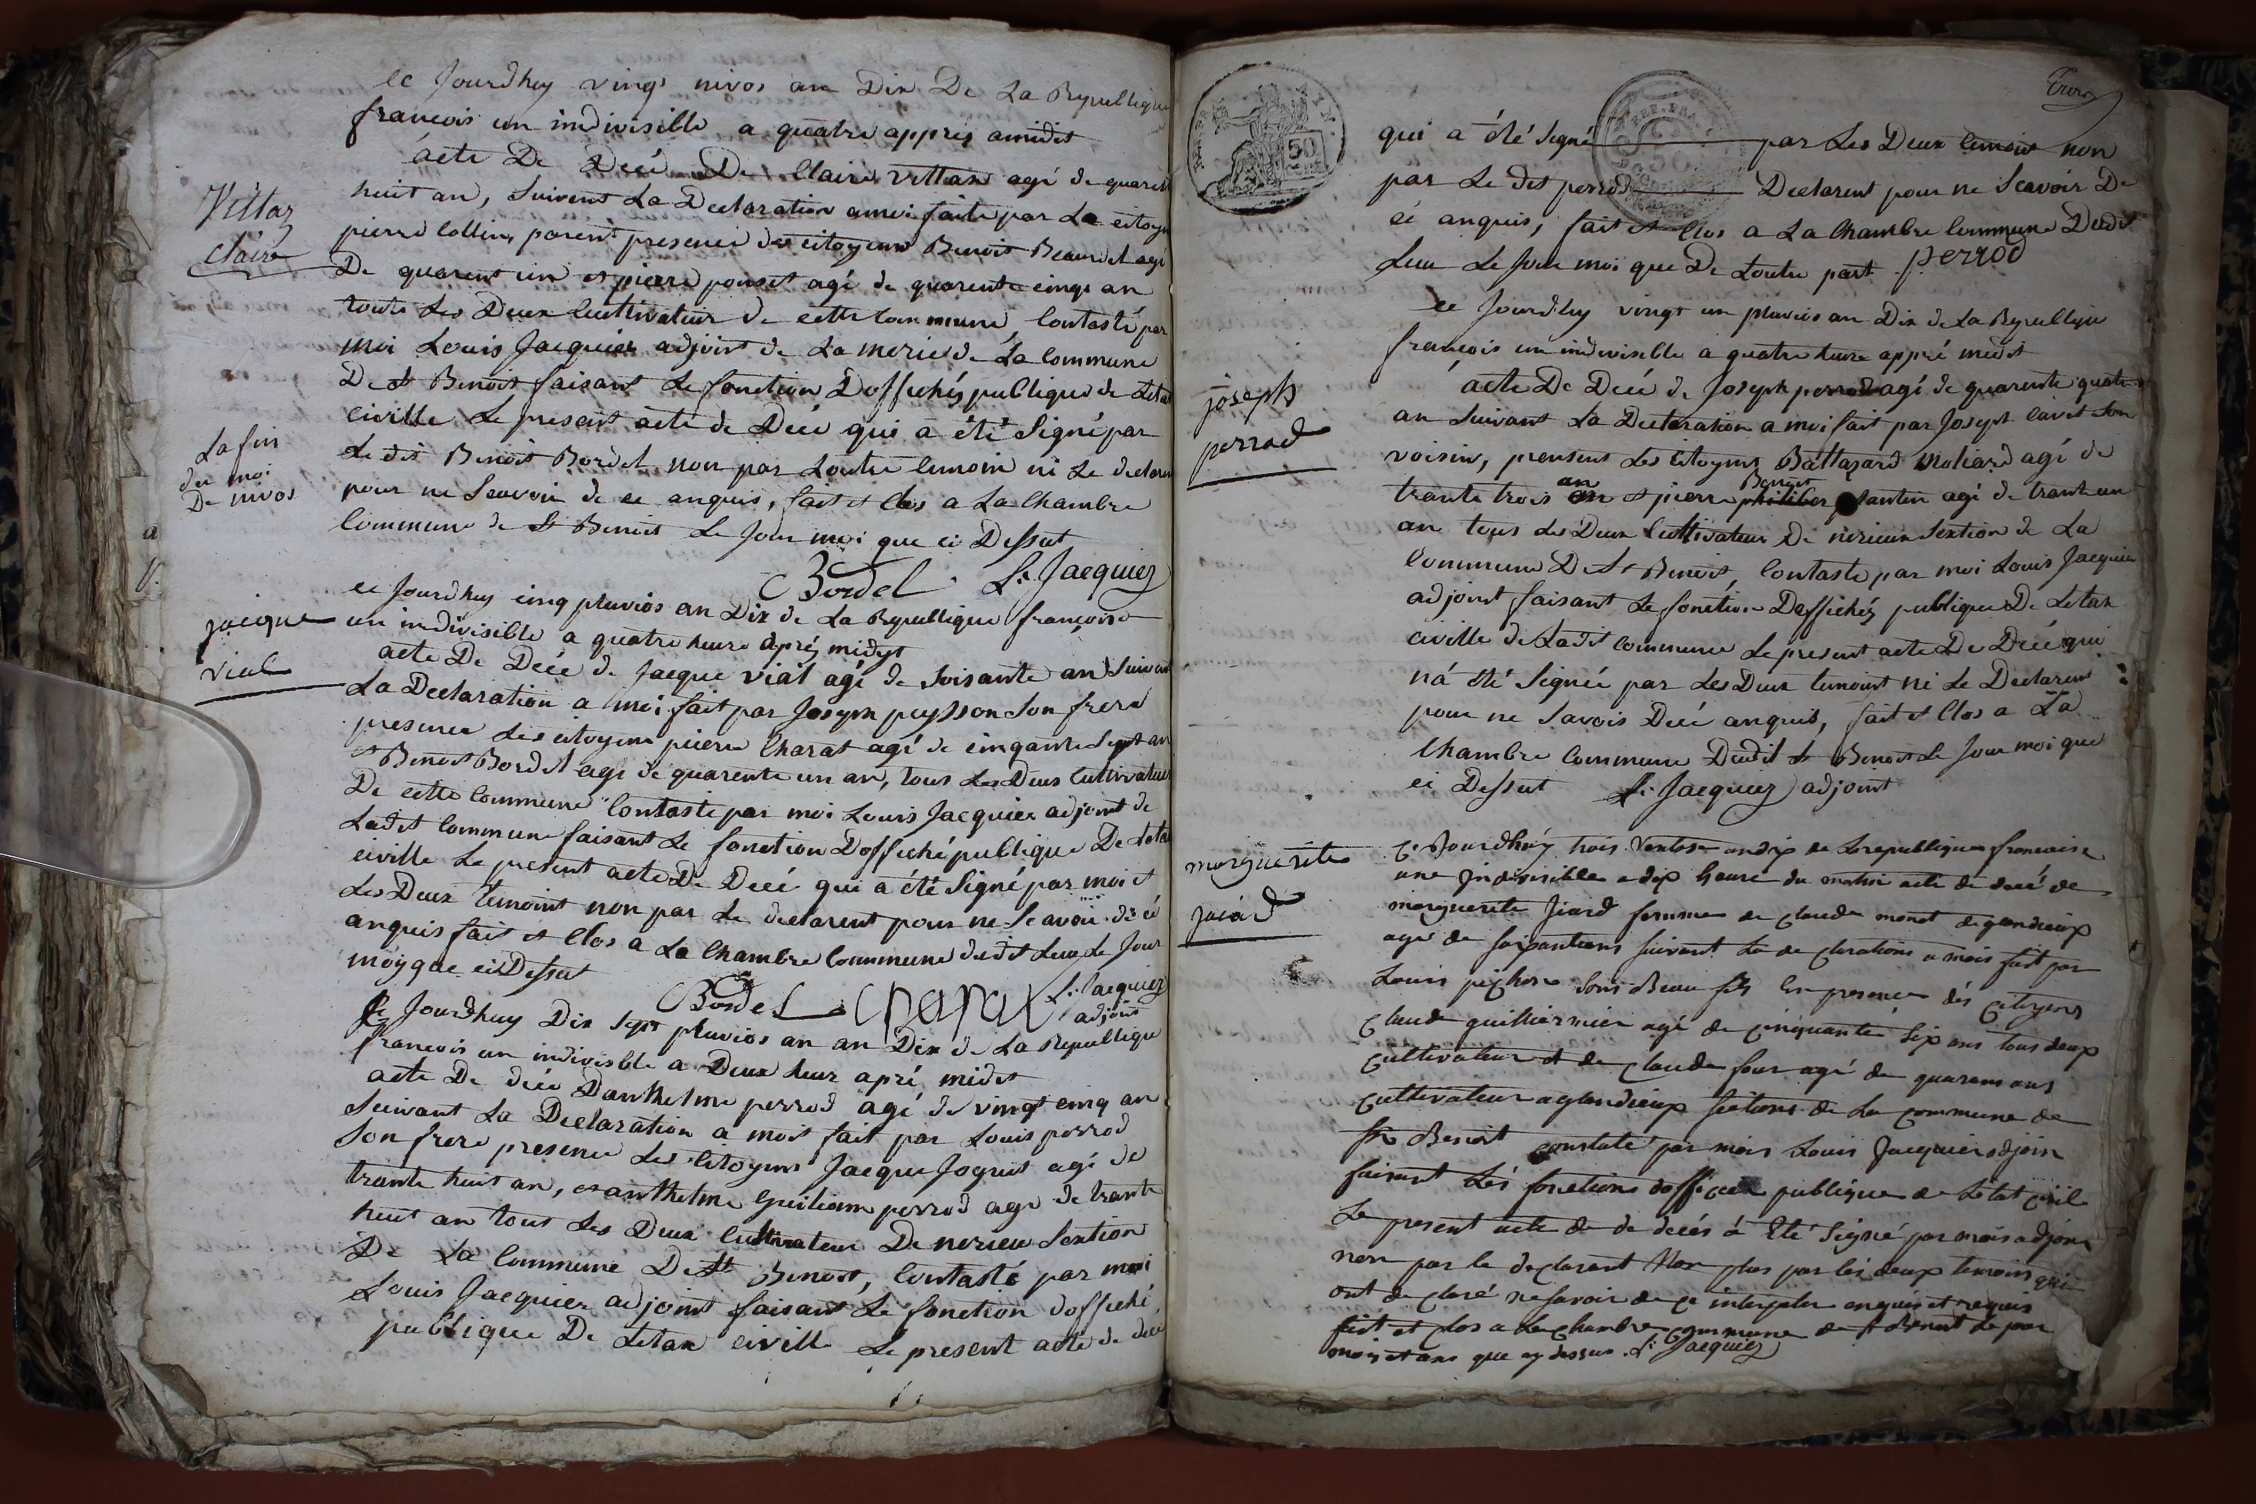 ce Jourdhuy vingt nivos an Dix De La Republique
francois un indivisible a quatre appres amidit
acte De Decé De Claire Villaz agé de quarente
Villaz
Claire
huit an, suivent La Declaration a moi faite par Le citoyen
pierre Collin, parent presence des citoyens Benoit Beaurdel agé
De quarent un et pierre ponset agé de quarente cinq an
touts Les Deux Cultivateur de cette Commune, Contasté par
moi Louis Jacquier adjoint de La merie de La Commune
De St Benoit faisant Le fonction Doffichés publique de Letat
La fin
du moi
De nivos
civille Le present acte de Decé qui a été Signé par
Le dit Benoit Bordel non par Loutre temoin ni Le declarent
pour ne Seavoir de ce anquis, fait et Clos a La Chambre
Commune de St Benoit Le Jour moi que ci Dessut
Bordel Ls Jacquier
jacque
vial
ce Jourdhuy cinq pluvios an Dix de La Republique francoise
un indivisible a quatre heure aprés midyt
acte De Decée de Jacque vial agé de Soisante an Suivant
La Declaration a moi fait par Joseph peysson Son frere
presence Les citoyens pierre Charat agé de cinqante Sept an
et Benoit Bordel agé de quarente un an, tous Les Deux Cultivateur
De cette Commune Contasté par moi Louis Jacquier adjoint de
Ladit Commune faisant Le fonction Dofficché publique De Letat
civille Le present acte De Decé qui a été Signé par moi et
Les Deux temoint non par Le declarent pour ne Scavoir de cé
anquis fait et Clos a La Chambre Commune dudit Lieu Le Jour
moy que ci Dessut
Bordel charat Ls Jacquier
adjoint
Ce Jourdhuy Dix Sept pluvios an an Dix de La Republique
francois un indivisible a Deux heur apré midit
acte De decé Danthelme perrod agé de vingt cinq an
Suivant La Declaration a moit fait par Louis perrod
Son frere presence Les Citoyens Jacque Joguet agé de
trante huit an, et anthelme Guiliam perrod agé de trante
huit an tout Les Deux Cultivateur De nerieu Section
De La Commune De St Benoit, Contasté par moi
Louis Jacquier adjoint faisant Le fonction dofficché
publique De Letat civill Le present acte de decé
Trois
50
qui a été Signé par Les Deux temoint non
par Le dit perrod Declarent pour ne Scavoir De
cé anquis, fait et Clos a La Chambre Commune Dudit
Lieu Le Jour moi que De Loutre part perrod
ce Jourdhuy vingt un pluvios an Dix de La Republique
francois un indivisible a quatre heure appré midit
joseph
perrod
acte De Decé de Joseph perrod agé de quarente quatre
an Suivant La Declaration a moi fait par Joseph Cavet Son
voisin, prensent Les Citoyens Baltazard Moliard agé de
trante trois an et pierre Benoit Santen agé de trante un
an tous Les Deux Cultivateur De nerieux Sextion de La
Commune De St Benoit, Contasté par moi Louis Jacquier
adjoint faisant Le fonction Dofficchéz publique De Letax
civille de Ladit Commune Le present acte De Decé qui
ná été Signé par Les Deux temoint ni Le Declarent
pour ne Savois Decé anquis, fait et Clos a La
Chambre Commune Dudit St Benoit Le Jour moi que
ci Dessut Ls Jacquier adjoint
marguerite
jaiard
Ce Jourdhuy trois Ventose an dix de La republique francaise
une Indivisible a dix heure du matin acte de decé de
marguerite Jiard femme de Claude monet de glandieux
agé de soixant ans suivant La declarations a mois fait par
Louis pichon sons Beau fils En presence dés Citoyens
Claude quilliermier agé de Cinquante Six ans tous deux
Cultivateur et de Claude four agé de quarens ans
Cultivateur a glandieux Sections de La Commune de
St Benoit constaté par mois Louis Jacquier adjoin
faisant Lés fonctions dofficier publique de Létat Civil
Le present acte de de decés à Eté Signé par mois adjoin
non par le declarant Non plus par les deux temoins qui
ont declaré ne savoir de ce interpeler enquis et requis
fait et clos a La chambre commune de St Benoit Le jour
mois et ans que cy dessus Ls Jacquier